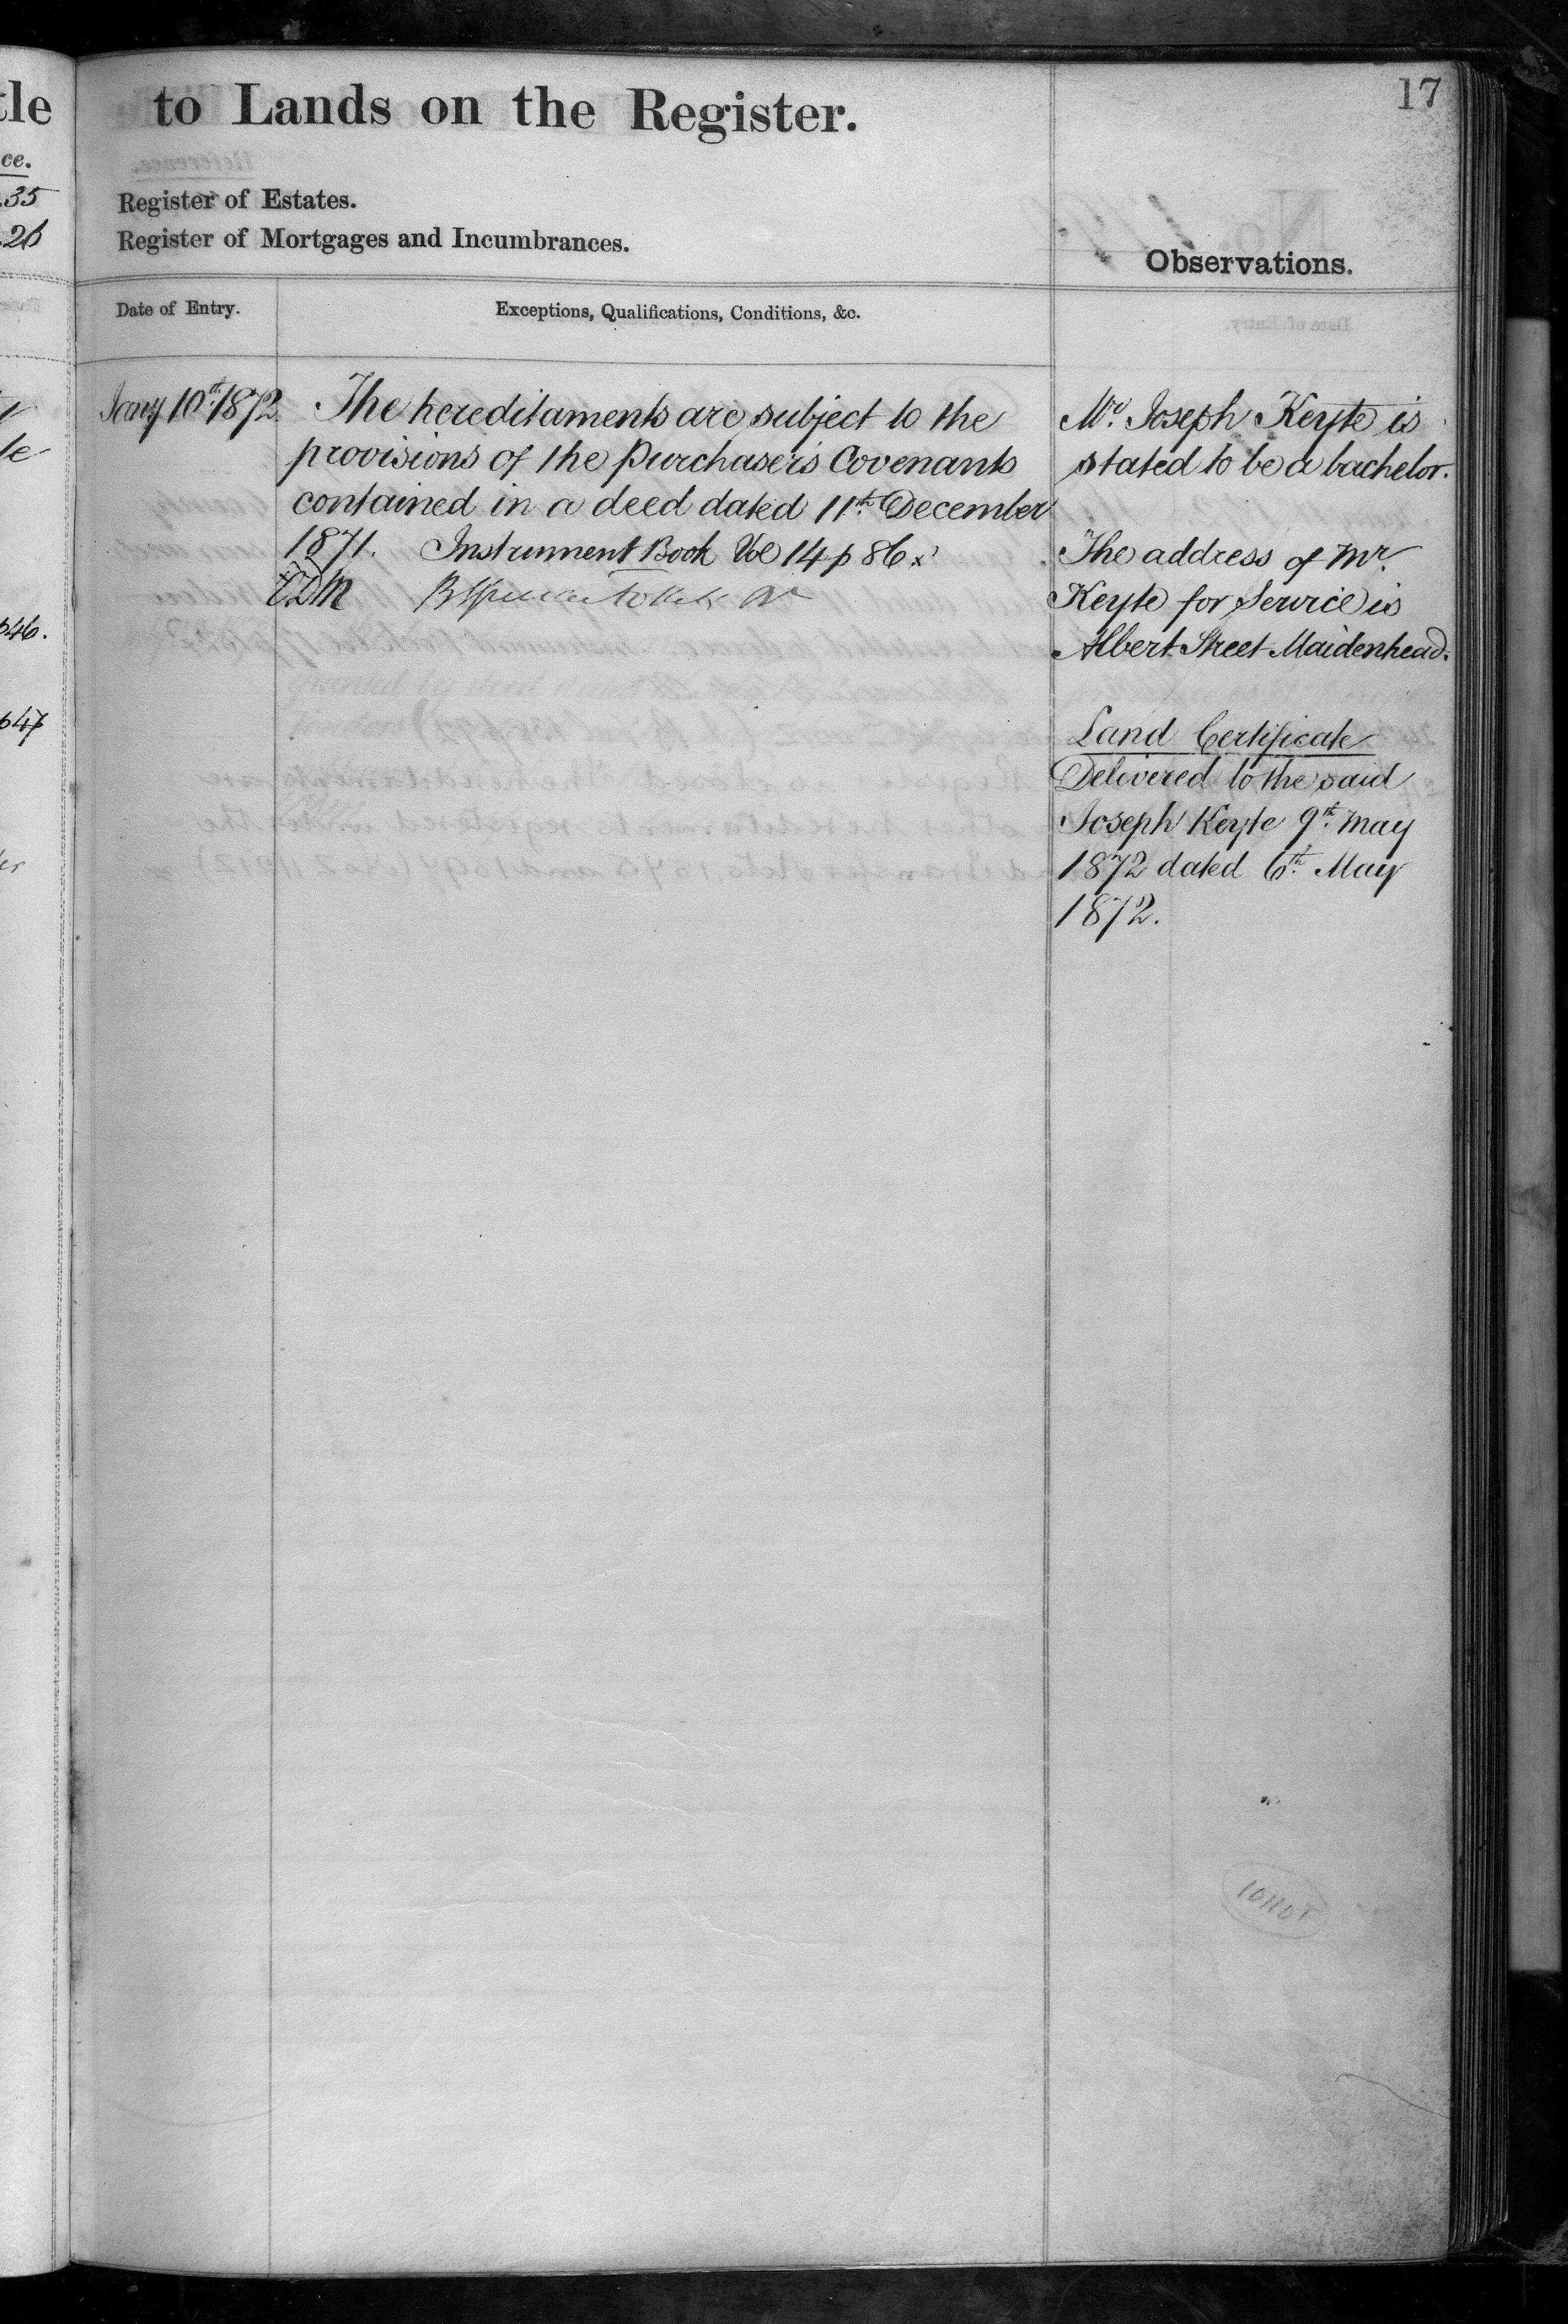 tle
ce.
.35
.26
p46.
p47
to Lands on the Register.
17
Register of Estates.
Register of Mortgages and Incumbrances.
Observations.
Date of Entry.
Exceptions, Qualifications, Conditions, &c.
Jany 10th 1872.
The hereditaments are subject to the
provisions of the Purchaser's Covenants
contained in a deed dated 11th December
1871. Instrument Book Vol 14 p 86 x
Mr. Joseph Keyte is
stated to be a bachelor.
The address of Mr.
Keyte for Service is
Albert Street Maidenhead.
Land Certificate
Delivered to the said
Joseph Keyte 9th May
1872 dated 6th May
1872.